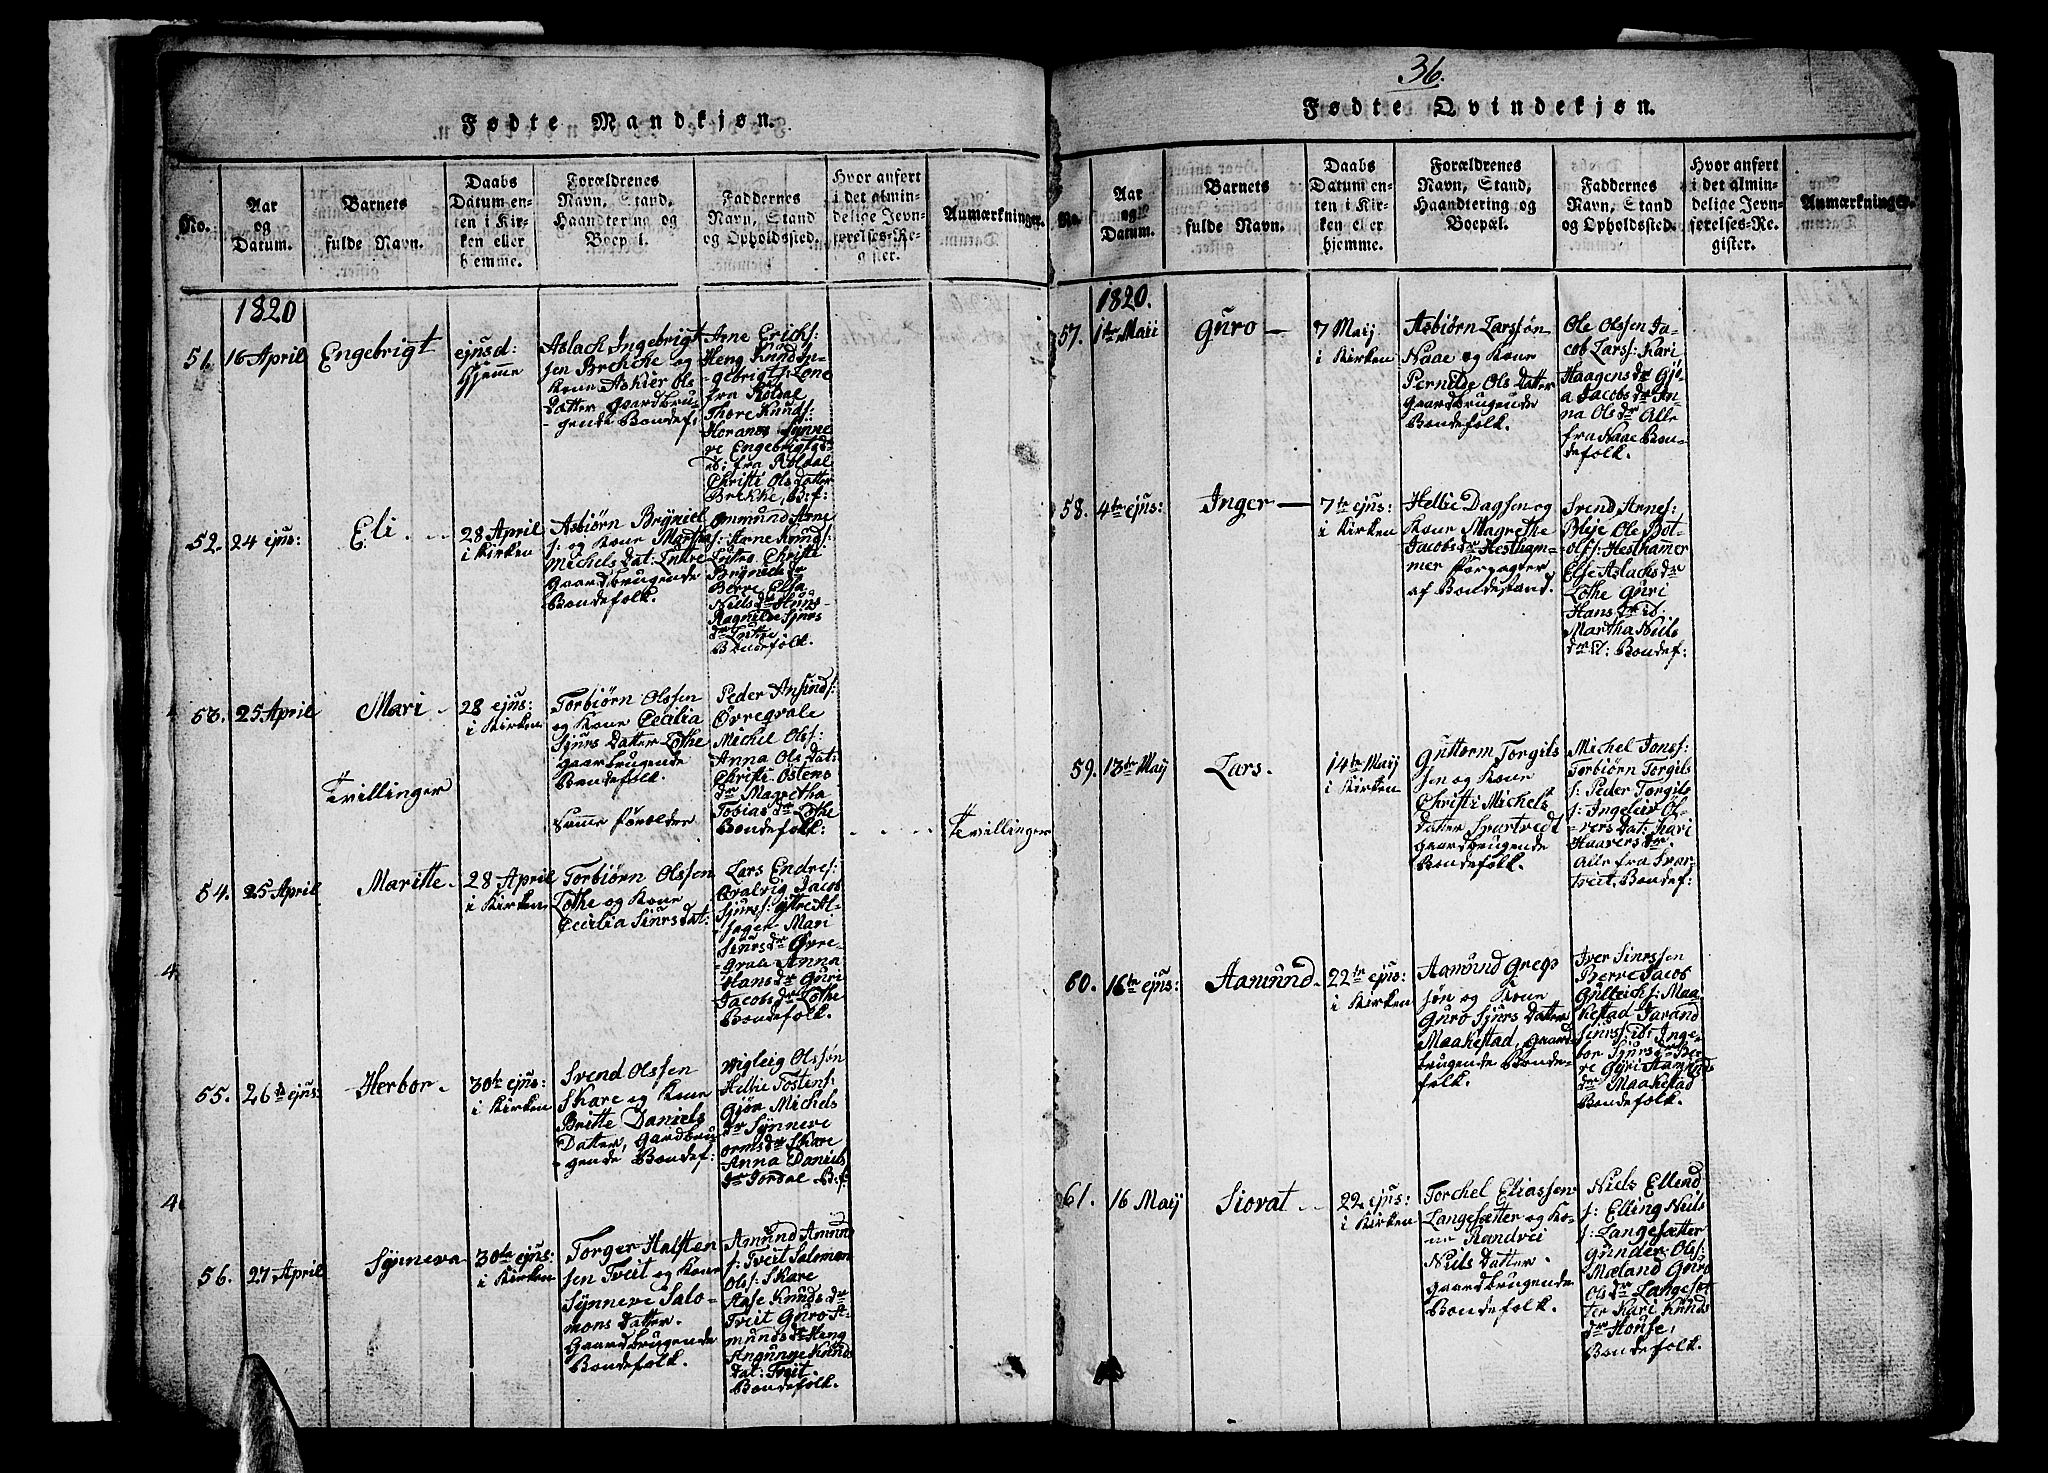 Fødte Mandkjøn.
No.
Aar
og
Datum.
Barnets
fulde Navn.
Daabs
Datum en-
ten i Kir-
ken eller
hjemme.
Forældrenes
Navn, Stand,
Haandtering og
Boepæl.
Faddernes
Navn, Stand
og Opholdssted.
Hvor anført
i det almin-
delige Jevn-
førelses-Re-
gister.
Anmærkninger.
1820
51.
16 April
Engebrigt
ejusd:
Hjemme
Aslach Ingebrigt
sen Brekke og
Kone Askier Ols
Datter gaardbru-
gende Bondef:
Arne Erichs:
Heng Knud In-
gebrigts: Lone
fra Roldal
Thore Knuds:
Horanes Synne
ve Engebrigtsdr
ib: fra Roldal
Christi Ols Datter
Brekke, B: f:
52.
24 ejus:
Eli
28 April
i Kirken
Asbiørn Bryniel
s: og Kone Martha
Michels Dat:
Gaardbrugende
Bondefolk.
Omund Arne
s: Arne Knud s:
Christi
Bryniels dr
Berre Else
Niels dr
Ragnilde Sjurs
dr
Bondefolk.
53.
25 April
Mari
28 ejus:
i Kirken
Torbiørn Olssen
og Kone Cecilia
Sjurs Datter Lothe
gaarbrugende
Bondefolk.
Peder Amunds:
Øvreqvale
Michel Ols:
Anna Ols Dat:
Christi Østens
dr Magretha
Tobias dr Lothe
Bondefolk:
Tvillinger
Samme Forældre
Tvillinger
54.
25 April
Maritte
28 April
i Kirken
Torbiørn Olssen
Lothe og Kone
Cecilia Siursdat:
Lars Endres:
Qvalvig Jacob
Sjurss: ytre Al-
sager Mari
Siurs dr Øvre-
qvale Anna
Hans dr Guri
Jacobs dr Lothe
Bondefolk.
55.
26de ejus:
Herbor
30te ejus:
i Kirken
Svend Olssen
Skare og Kone
Britte Daniels
Datter, gaardbru
gende Bondef:
Wigleig Olssøn
Helbie Tostens:
Gjør Michels
dr Synneve
orms dr Skare
Anna Daniels
dr Jordal B: f:
56.
27 April
Synneva
30te ejus:
i Kirken
Torger Halsten
sen Tveit og Kone
Synneve Salo-
mons Datter.
Gaardbrugende
Bondefolk.
Amund Amund
s: Tveit Salomon
Ols: Skare
Aase Knuds dr
Tveit Guro A-
munds dr Heng
Angunne Knuds
Dat: Tveit.
Bondefolk.
36.
Fødte Qvindekjøn.
No.
Aar
og
Datum.
Barnets
fulde Navn.
Daabs
Datum en-
ten i Kir-
ken eller
hjemme.
Forældrenes
Navn, Stand,
Haandtering og
Boepæl.
Faddernes
Navn, Stand
og Opholdssted.
Hvor anført
i det almin-
delige Jevn-
førelses-Re-
gister.
Anmærkninger.
1820.
57.
1te Maii
Guro
7 Maij
i Kirken
Asbiørn Larssøn
Naae og Kone
Pernilde Ols Datter
gaardbrugende
Bondefolk.
Ole Olssen Ja-
cob Lars: Kari
Haagens dr Gjø-
a Jacobs dr An-
na Ols dr Alle
fra Naae Bon-
defolk.
58.
4te ejus:
Inger
7te ejus:
i Kirken
Helbie Dagsen og
Kone Magrethe
Jacobs dr Hestham-
mer Forpagter
af Bondestand.
Svend Arnes:
Bleje Ole Bot-
olfs: Hesthamer
Else Aslachs dr
Lothe Guri
Hans dr ib:
Martha Niels
dr Bondef:
59.
13te Maij
Lars.
14te Maij
i Kirken
Guttorm Torgils
sen og Kone
Christi Michels
Datter Svartvedt
gaardbrugende
Bondefolk.
Michel Jons:
Torbiørn Torgils
s: Peder Torgils
s: Ingeleiv O-
vers Dat: Kari
Haavers dr.
Alle fra Svar-
tveit, Bondef:
60.
16te ejus:
Aamund
22te ejus:
i Kirken
Aamund Gregs
søn og Kone
Guro Sjurs Datter
Maakestad, gaard
brugende Bonde-
folk.
Iver Siurssen
Berve Jacob
Gulleichs: Maa-
kestad Tarand
Siurss: ib: Inge-
bor Sjurs dr Be
ve Gyri Aamunds
dr Maakestad
Bondefolk.
61.
16 Maij
Siovat
22 ejus:
i Kirken
Torchel Eliassen
Langesætter og Ko-
ne Randvei
Niels Datter
gaardbrugende
Bondefolk.
Niels Ellend
s: Elling Niels
s: Langesætter
Gunder Ols:
Mæland Guro
Ols dr Langesæt
ter Kari Knuds
dr House,
Bondefolk.